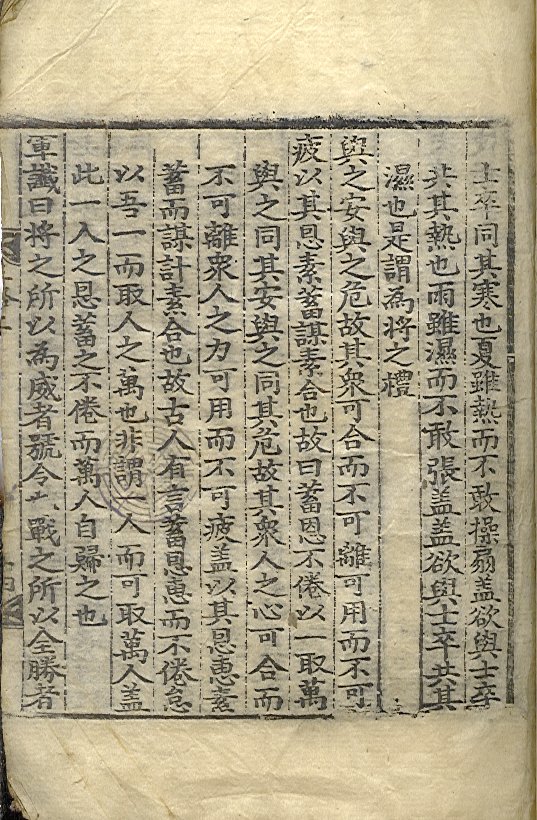 士卒同其寒也夏雖熱而不敢操扇盖欲與士卒
共其熱也雨雖濕而不敢張盖盖欲與士卒共其
濕也是謂為將之禮
與之安與之危故其衆可合而不可離可用而不可
疲以其恩素蓄謀素合也故曰蓄恩不倦以一取萬
與之同其安與之同其危故其衆人之心可合而
不可離衆人之力可用而不可疲盖以其恩惠素
蓄而謀計素合也故古人有言蓄恩惠而不倦怠
以吾一而取人之萬也非謂一人而可取萬人盖
此一人之恩蓄之不倦而萬人自歸之也
軍讖曰將之所以為威者號令也戰之所以全勝者